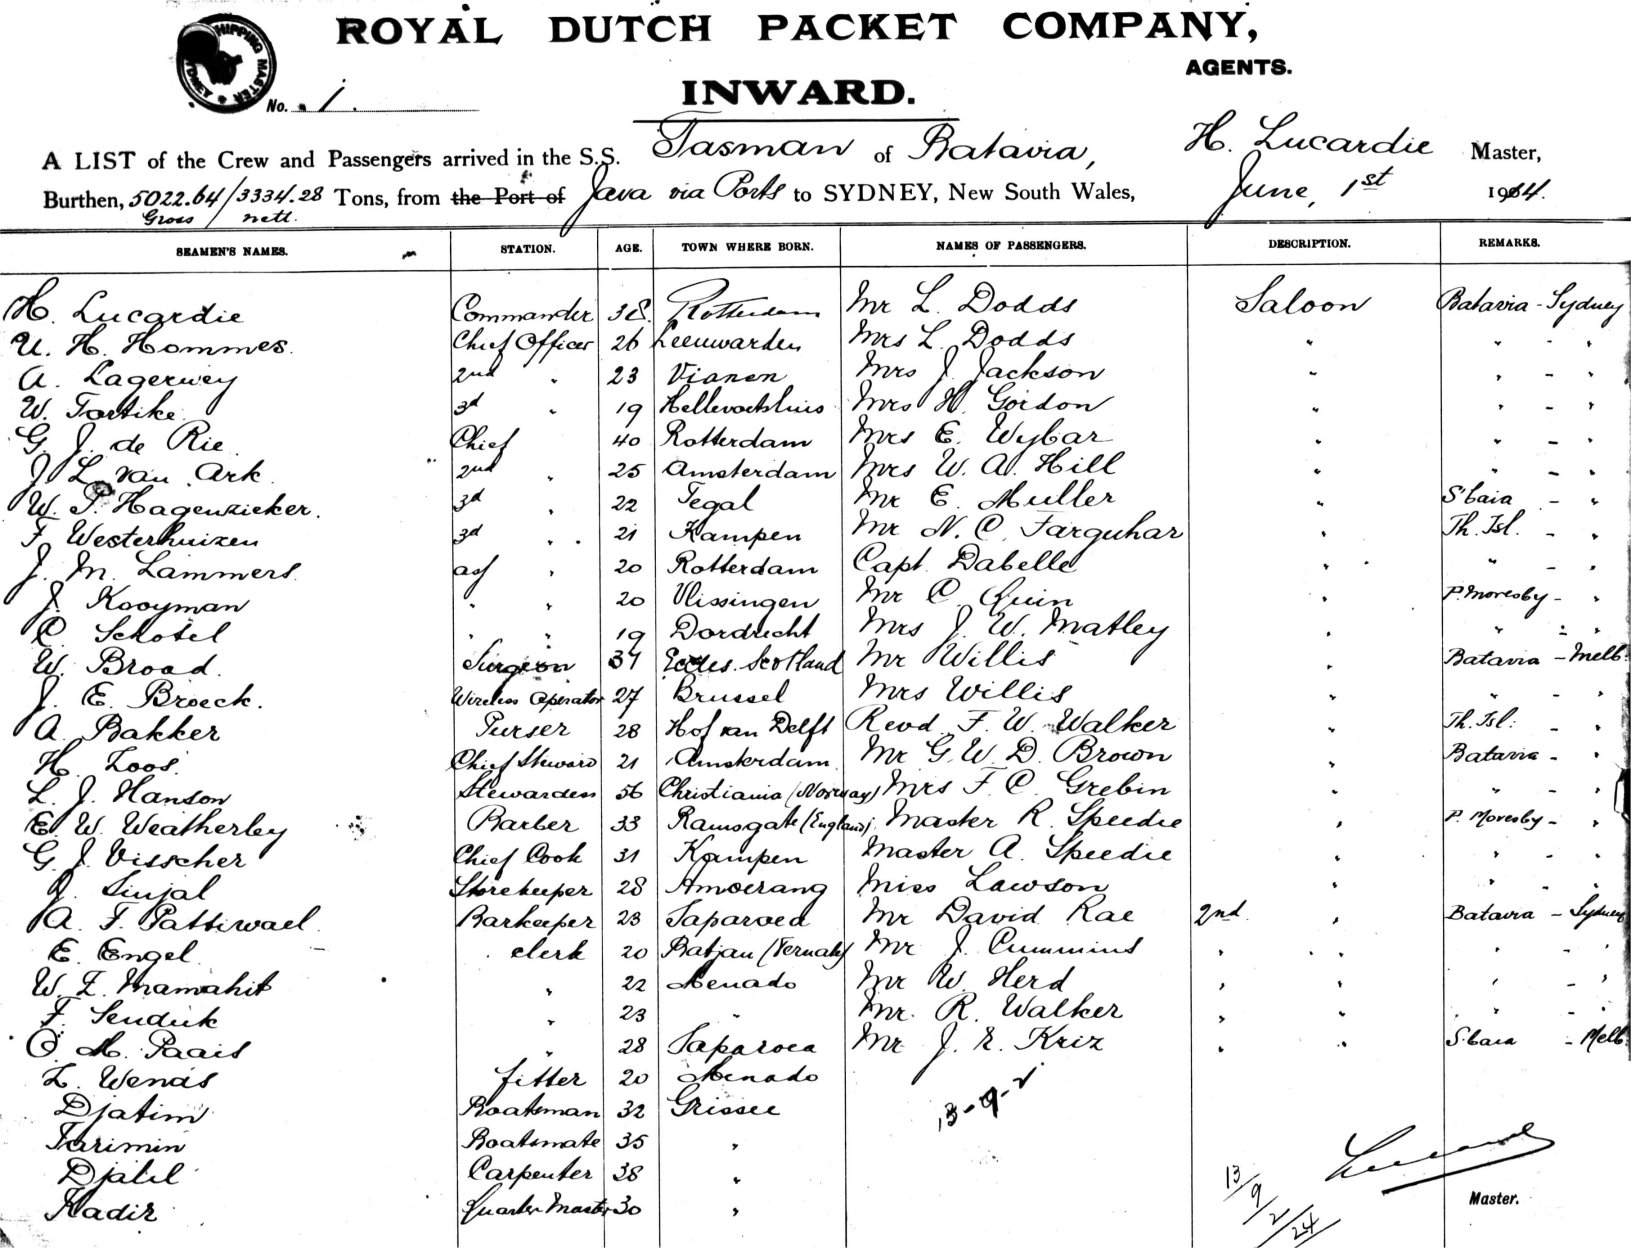 ROYAL DUTCH PACKET COMPANY,
AGENTS.
SHIPPING MASTER
No. 1.
INWARD.
A LIST of the Crew and Passengers arrived in the S.S. Tasman of Batavia, H. Lucardie Master,
Burthen, 5022.64/3334.28 Tons, from the Port of Java via Ports to SYDNEY, New South Wales, June, 1st 1914.
Gross / nett.
SEAMEN'S NAMES. STATION. AGE. TOWN WHERE BORN. NAMES OF PASSENGERS. DESCRIPTION. REMARKS.
H. Lucardie Commander 38. Rotterdam Mr L. Dodds Saloon Batavia - Sydney
U. H. Hommes. Chief Officer 26 Leeuwarden Mrs L. Dodds " " - "
A. Lagerwey 2nd " 23 Vianen Mrs J. Jackson " " - "
W. Tortike 3d " 19 Hellevoetsluis Mrs H. Gordon " " - "
G. J. de Rie Chief 40 Rotterdam Mrs E. Wybar " " - "
J. L. van Ark 2nd " 25 Amsterdam Mrs W. A. Hill " " - "
W. P. Hagenzieker. 3d " 22 Tegal Mr E. Muller " S'baia - "
F. Westerhuizen 3d " 21 Kampen Mr N. C. Farquhar " Th. Isl. - "
J. M. Lammers. " 20 Rotterdam Capt. Dabelle " " - "
J. Kooyman " " 20 Vlissingen Mr C. Quin " P. Moresby - "
C. Schotel " " 19 Dordrecht Mrs J. W. Matley " " - "
W. Broad. Surgeon 37 Eccles. Scotland Mr Willis " Batavia - Melb:
J. E. Broeck. Wireless Operator 27 Brussel Mrs Willis " " - "
A. Bakker Purser 28 Hof van Delft Revd F. W. Walker " Th. Isl: - "
H. Loos. Chief Steward 21 Amsterdam Mr G. W. D. Brown " Batavia - "
L. J. Hanson Stewardess 56 Christiania (Norway) Mrs F. C. Grebin " " - "
E. W. Weatherley Barber 33 Ramsgate (England) Master R. Speedie " P. Moresby - "
G. J. Visscher Chief Cook 31 Kampen Master A. Speedie " " - "
Sinjal Storekeeper 28 Amoerang Miss Lawson " " - "
A. F. Pattiwael Barkeeper 23 Saparoea Mr David Rae 2nd. " Batavia - Sydney
E. Engel. clerk 20 Batjan (Ternate) Mr J. Cummins " " " - "
W. Z. Mamahit " 22 Menado Mr W. Herd " " " - "
F. Senduk " 23 " Mr. R. Walker " " " - "
O. M. Paais " 28 Saparoea Mr J. E. Kriz " " S'baia - Melb:
Z. Wenas fitter 20 Menado
Djatim Boatsman 32 Grissee
Tarimin Boatsmate 35 "
Djalil Carpenter 38 "
Kadir Quarter Master 30 "
13-9-2
13/9/2/24
Master.